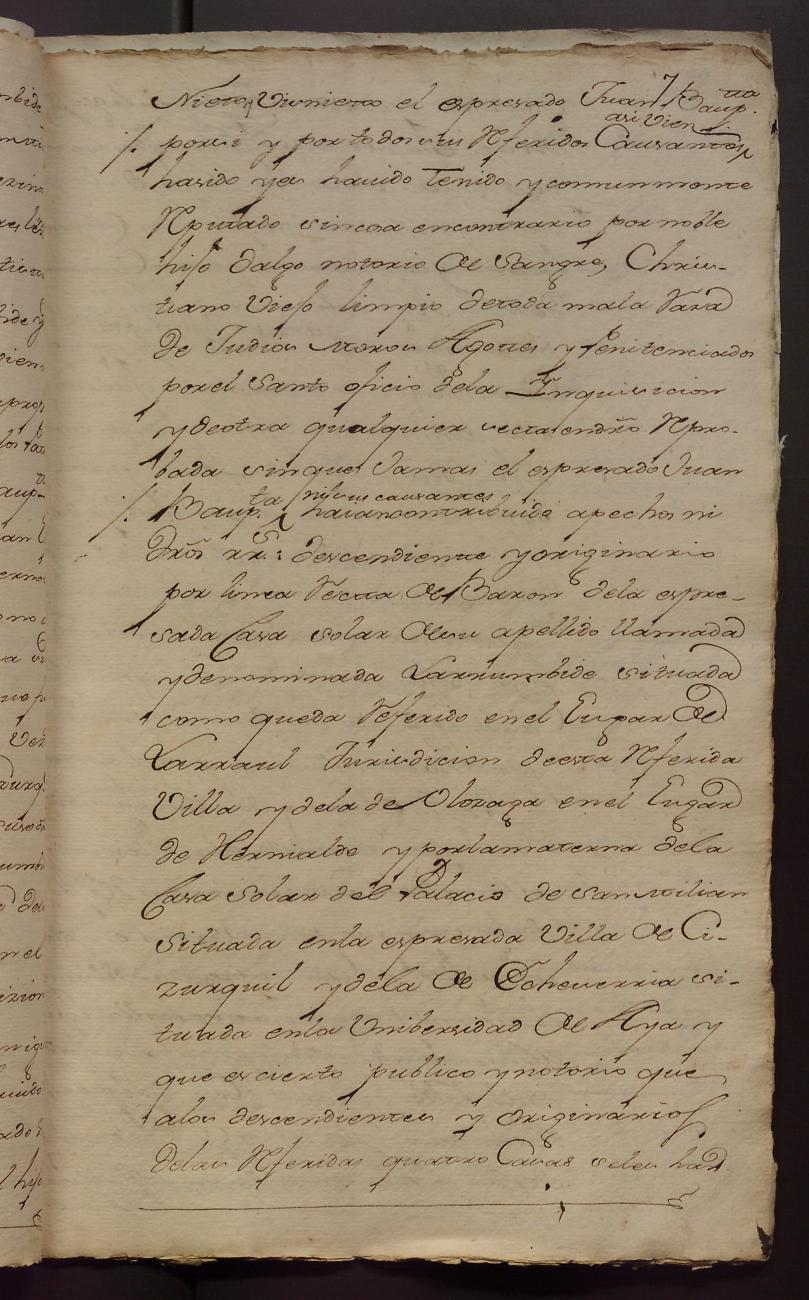 Nieto, Visnieto el espresado Juan Baup.ta
asi vien
/. por si y por todos sus Rferidos Causantes
ha sido y es hauido tenido y comunmente
Rputado sin cosa encontrario por noble
hijo dalgo notorio de Sangre, Chris-
tiano Viejo limpio de toda mala Raza
de Judios Moros Agotes y Penitenciados
por el Santo oficio dela Inquisicion
y de otra qualquier secta endro Rpro-
bada sin que Jamas el espresado Juan
ni sus causantes
/. Baup.ta haian contribuido apechos ni
Dros rr.s descendiente y originario
por linea Recta de Baron dela espre-
sada Casa solar de su apellido llamada
y denominada Larrumbide situada
como queda Referido en el Lugar de
Larraul Jurisdicion de esta Rferida
Villa y dela de Olozaga en el Lugar
de Hernialde y por la materna dela
Casa Solar del Palacio de San Milian
Situada enla espresada Villa de Ci-
zurquil y dela de Echeverria si-
tuada enla Unibersidad de Aya y
que es cierto publico y notorio que
alos descendientes y originarios
delas Rferidas quatro Casas seles had